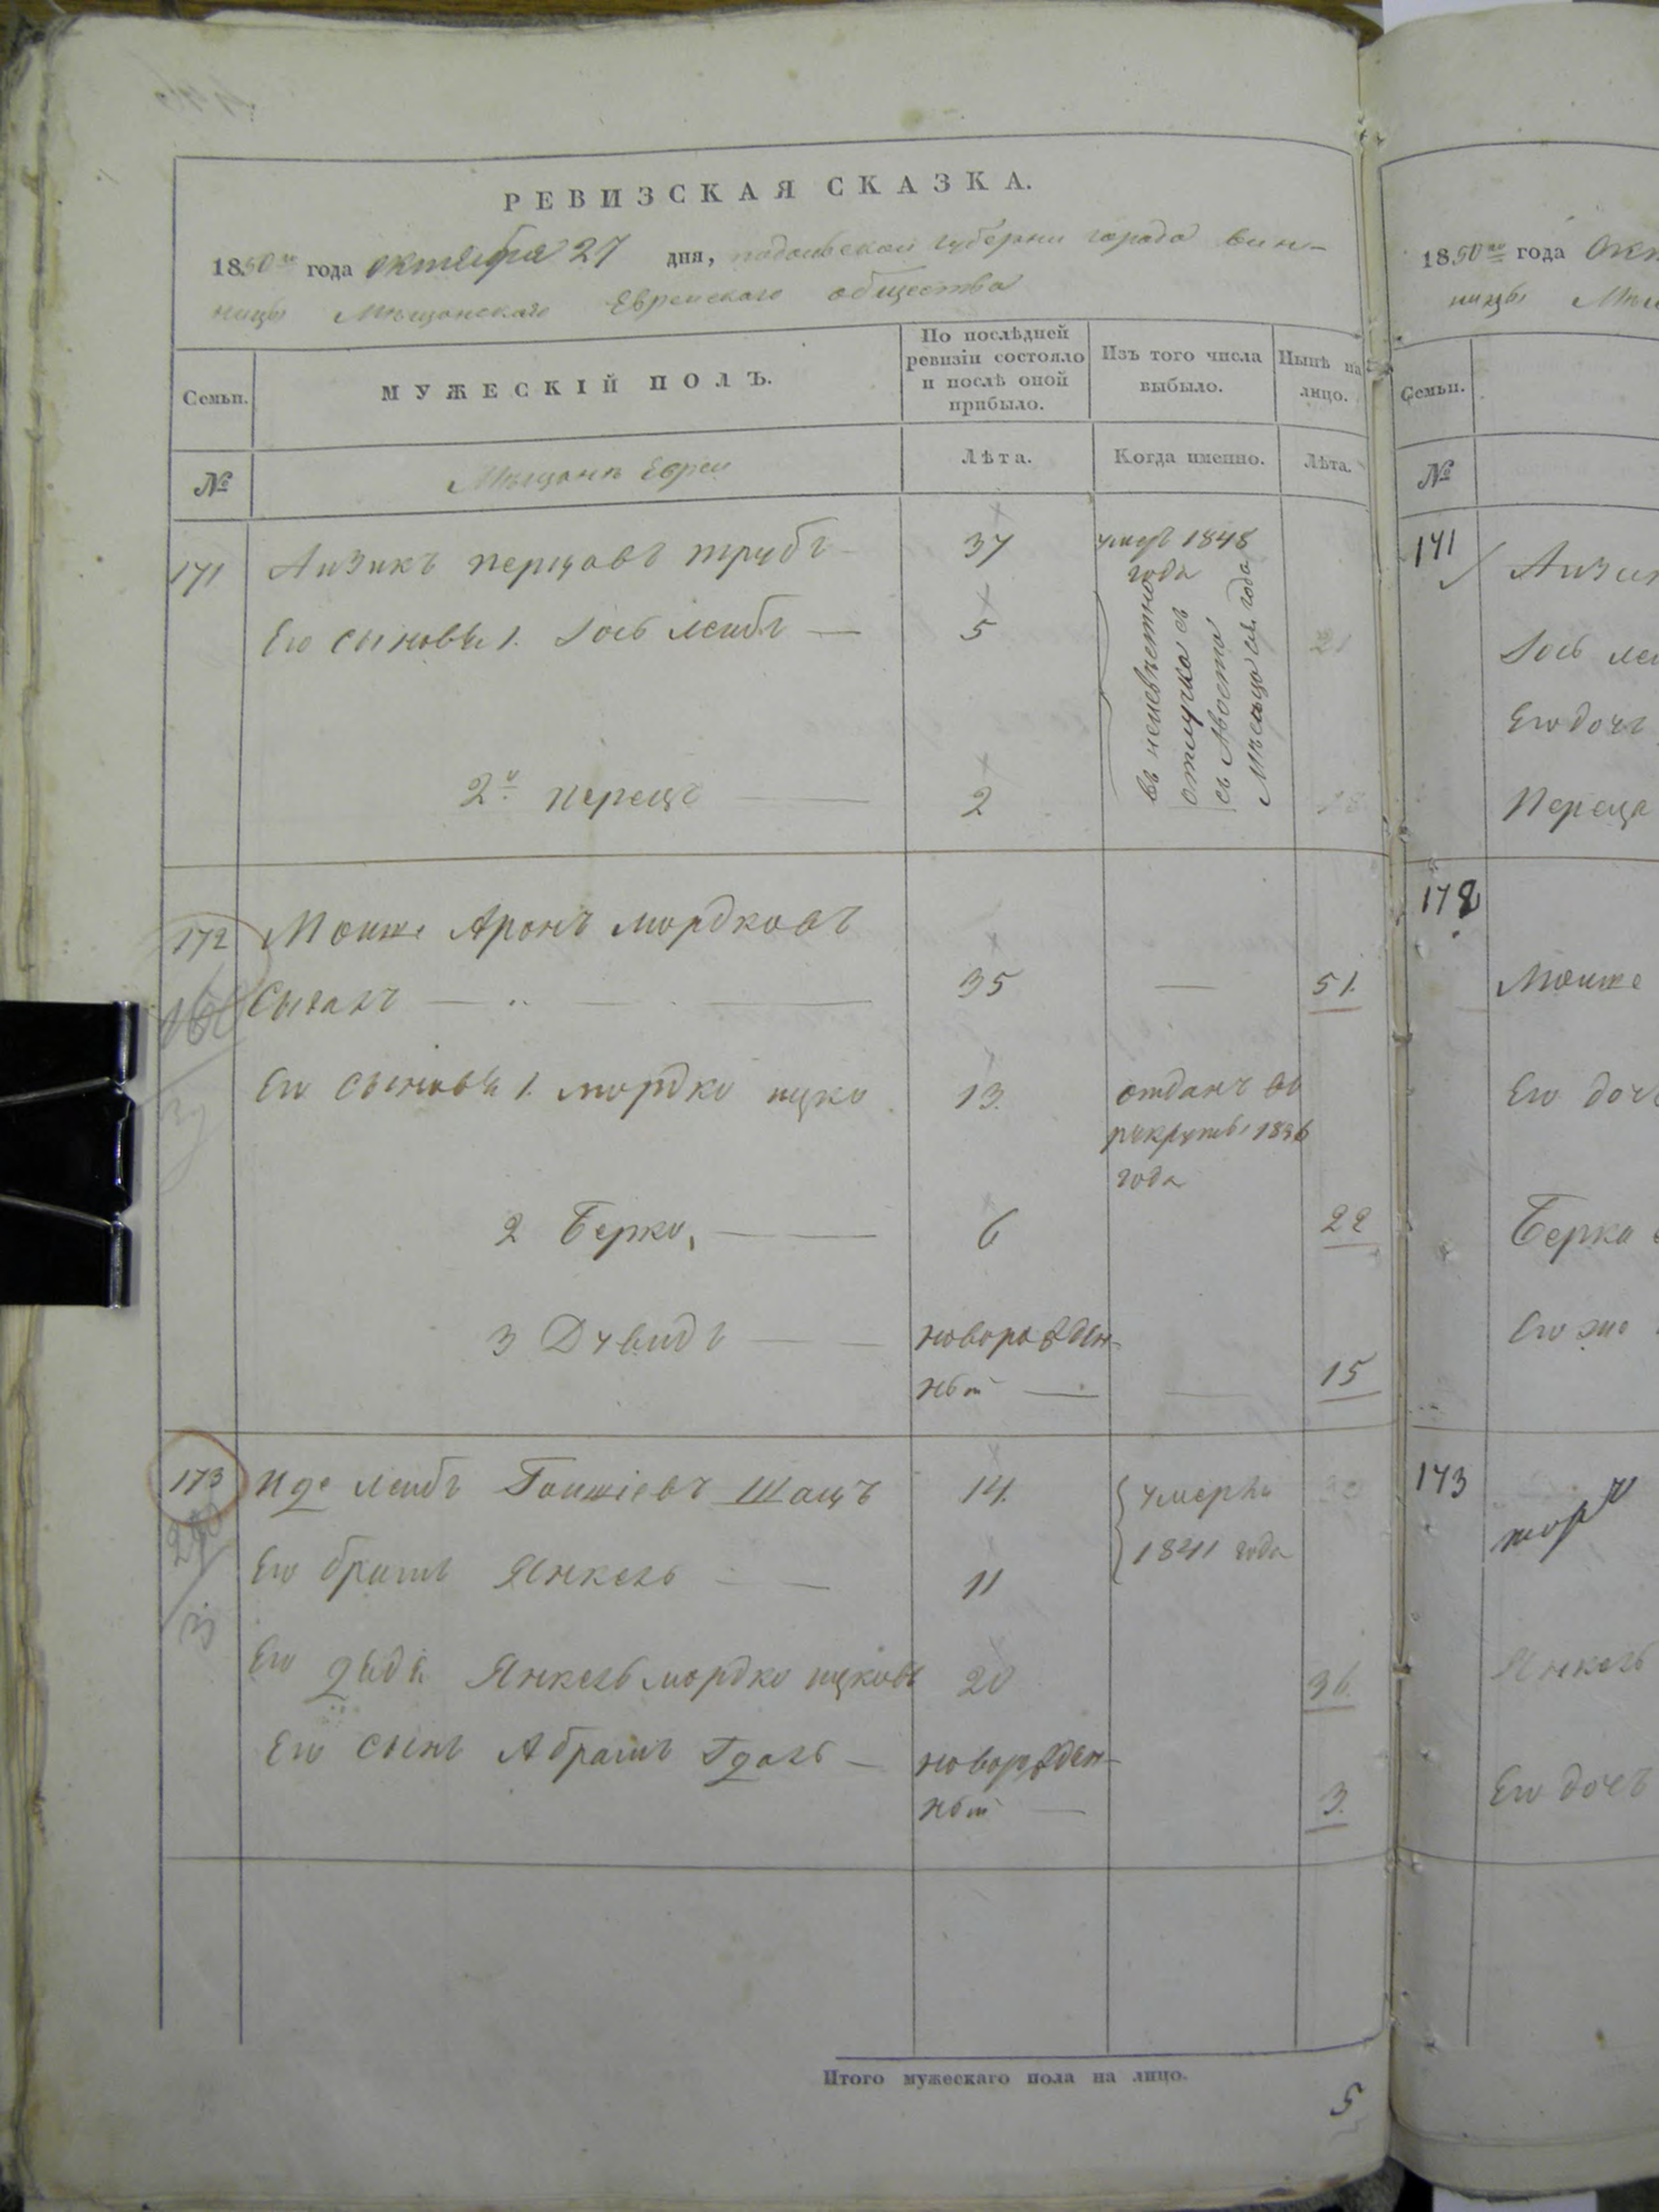 РЕВИЗСКАЯ СКАЗКА.
1850го года октября 27 дня, подольской губернии города вин-
ницы Мещанскаго Еврейскаго общества
Семьи. МУЖЕСКІЙ ПОЛЪ. По послѣдней ревизіи состояло и послѣ оной прибыло. Изъ того числа выбыло. Нынѣ на лицо.
№ Мѣщане Евреи Лѣта. Когда именно. Лѣта.
171 Аизикъ перцовъ трубъ 37 умеръ 1848 года
Его сыновья 1. Іось леибъ — 5 21
въ неизвѣстной
отлучке съ
съ Августа
Мѣсяца сег. года
2й перецъ — 2 18
172 Моише Аронъ мордковъ
Сигалъ — 35 — 51.
Его сыновья 1. мордко ицко 13. отданъ въ
рекруты 1836
года
2 Берко, — 6 22
3 Дувидъ — новорожден-
ный — — 15
173 Иде леибъ Шацъ 14. умерли
1841 года
Его братъ Янкель — 11
Его дядя Янкель мордко ицковъ 20 36.
Его сынъ Абрамъ Гдаль — новорожден-
ный — 3.
Итого мужескаго пола на лицо.
5
1850го года Окт
ницы Мѣщ
Семьи.
№
171 Аизик
Іось леи
Его дочь
Переца
172
Моише
Его доч
Берка
Его же
173
Янкель
Его дочь